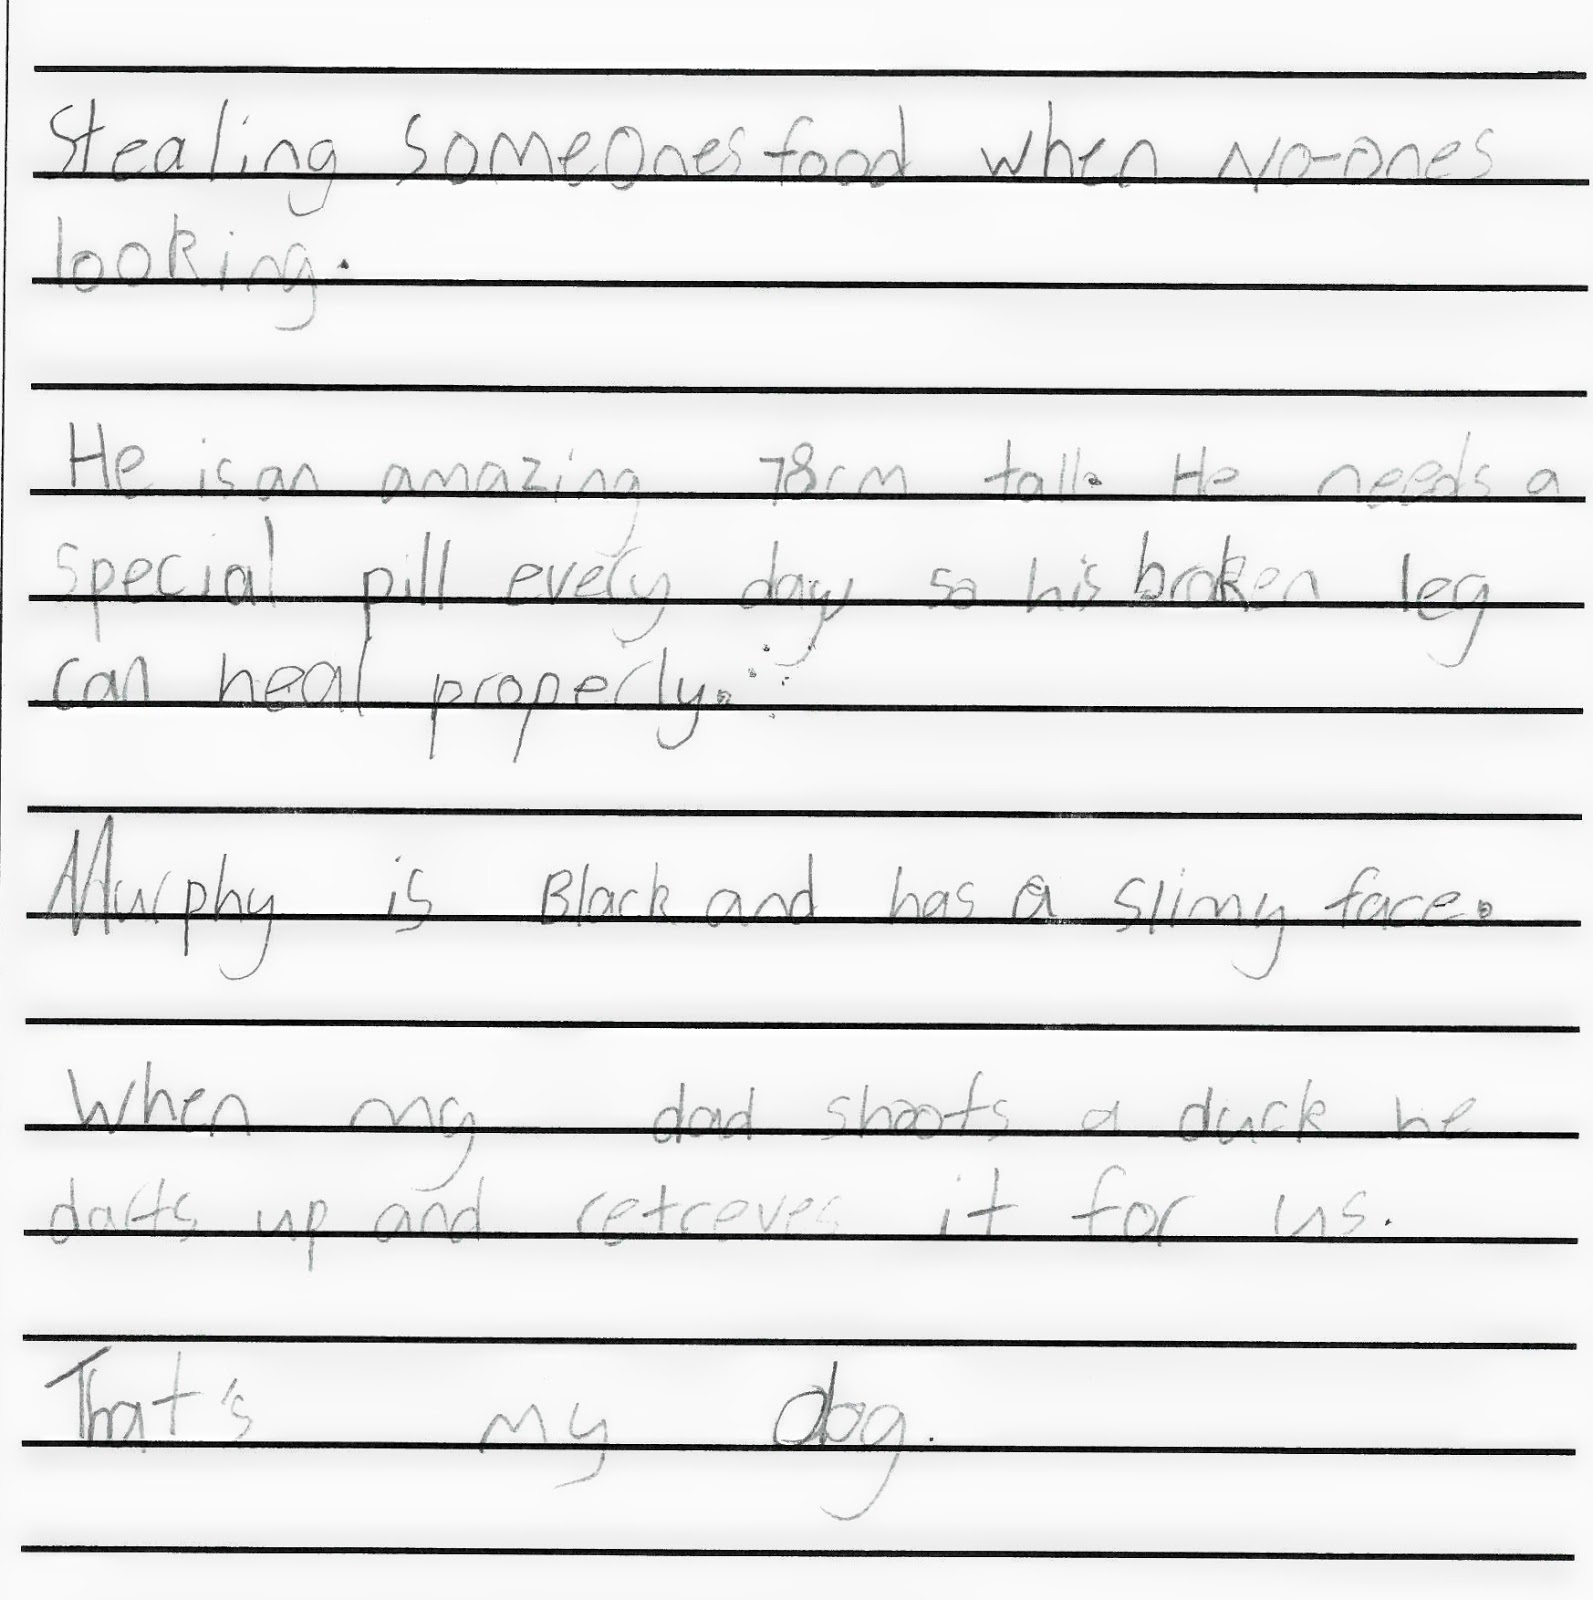 Stealing someOnes food when No-ones
looking.
He is an amazing 78cm tall. He needs a
special pill every day so his broken leg
can heal properly.
Murphy is Black and has a slimy face.
When my dad shoots a duck he
darts up and retreves it for us.
That's my dog.